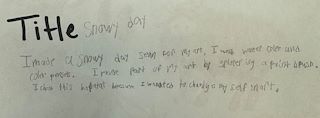 Title Snowy day
I made a snowy day sean for my art, I used water color and
color pencils. I made part of my art by splater ing a paint brush.
I chose this because I wanted to challenge my self